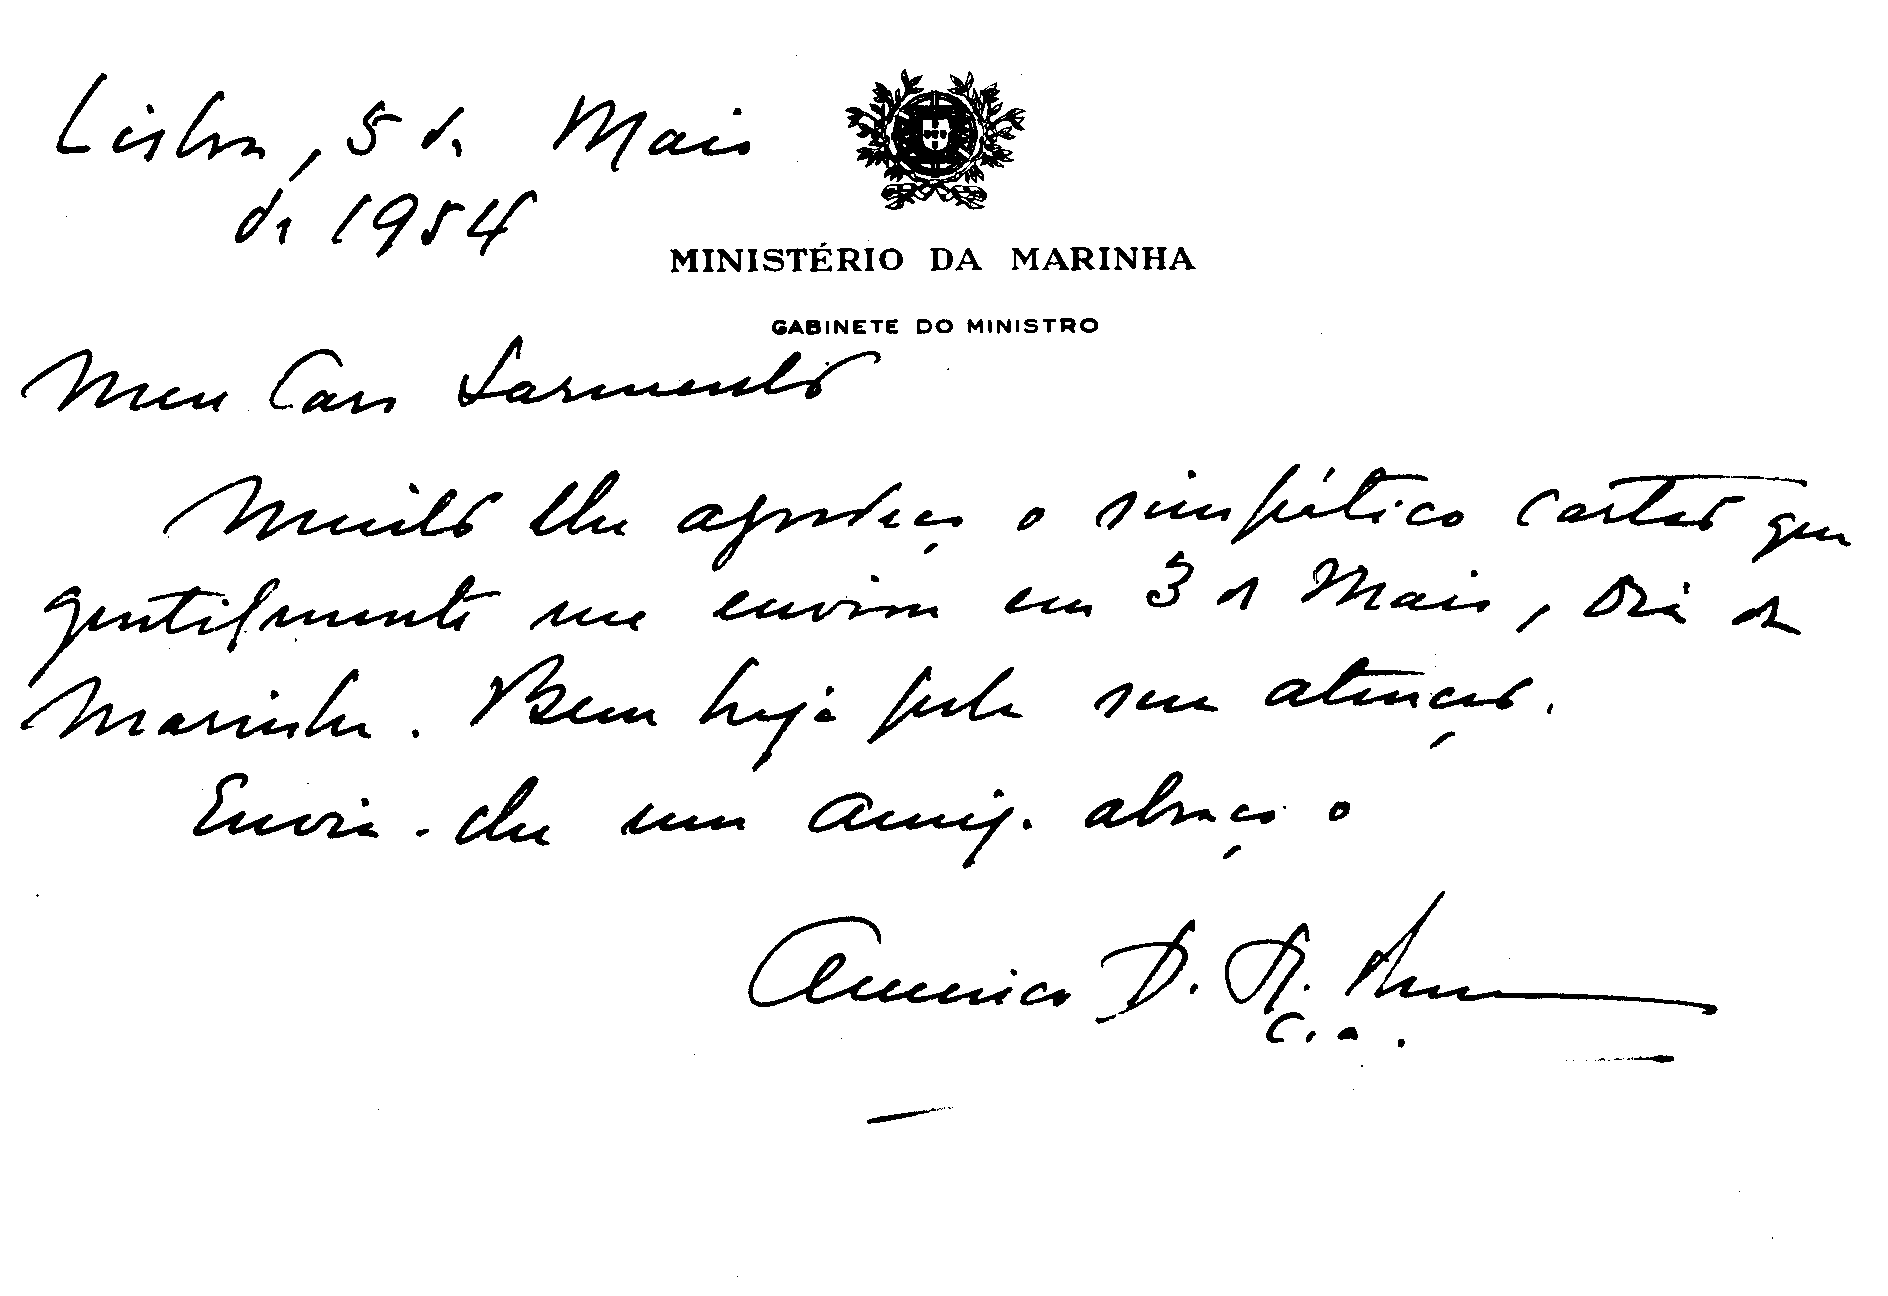 Lisboa, 5 de Maio
de 1954
MINISTÉRIO DA MARINHA
GABINETE DO MINISTRO
Meu Caro Sarmento
Muito lhe agradeço o simpático cartão que
gentilmente me enviou em 3 de Maio, Dia da
Marinha. Bem haja pela sua atenção.
Envia-lhe um amig. abraço o
Americo D. R. Thomaz
C. a.